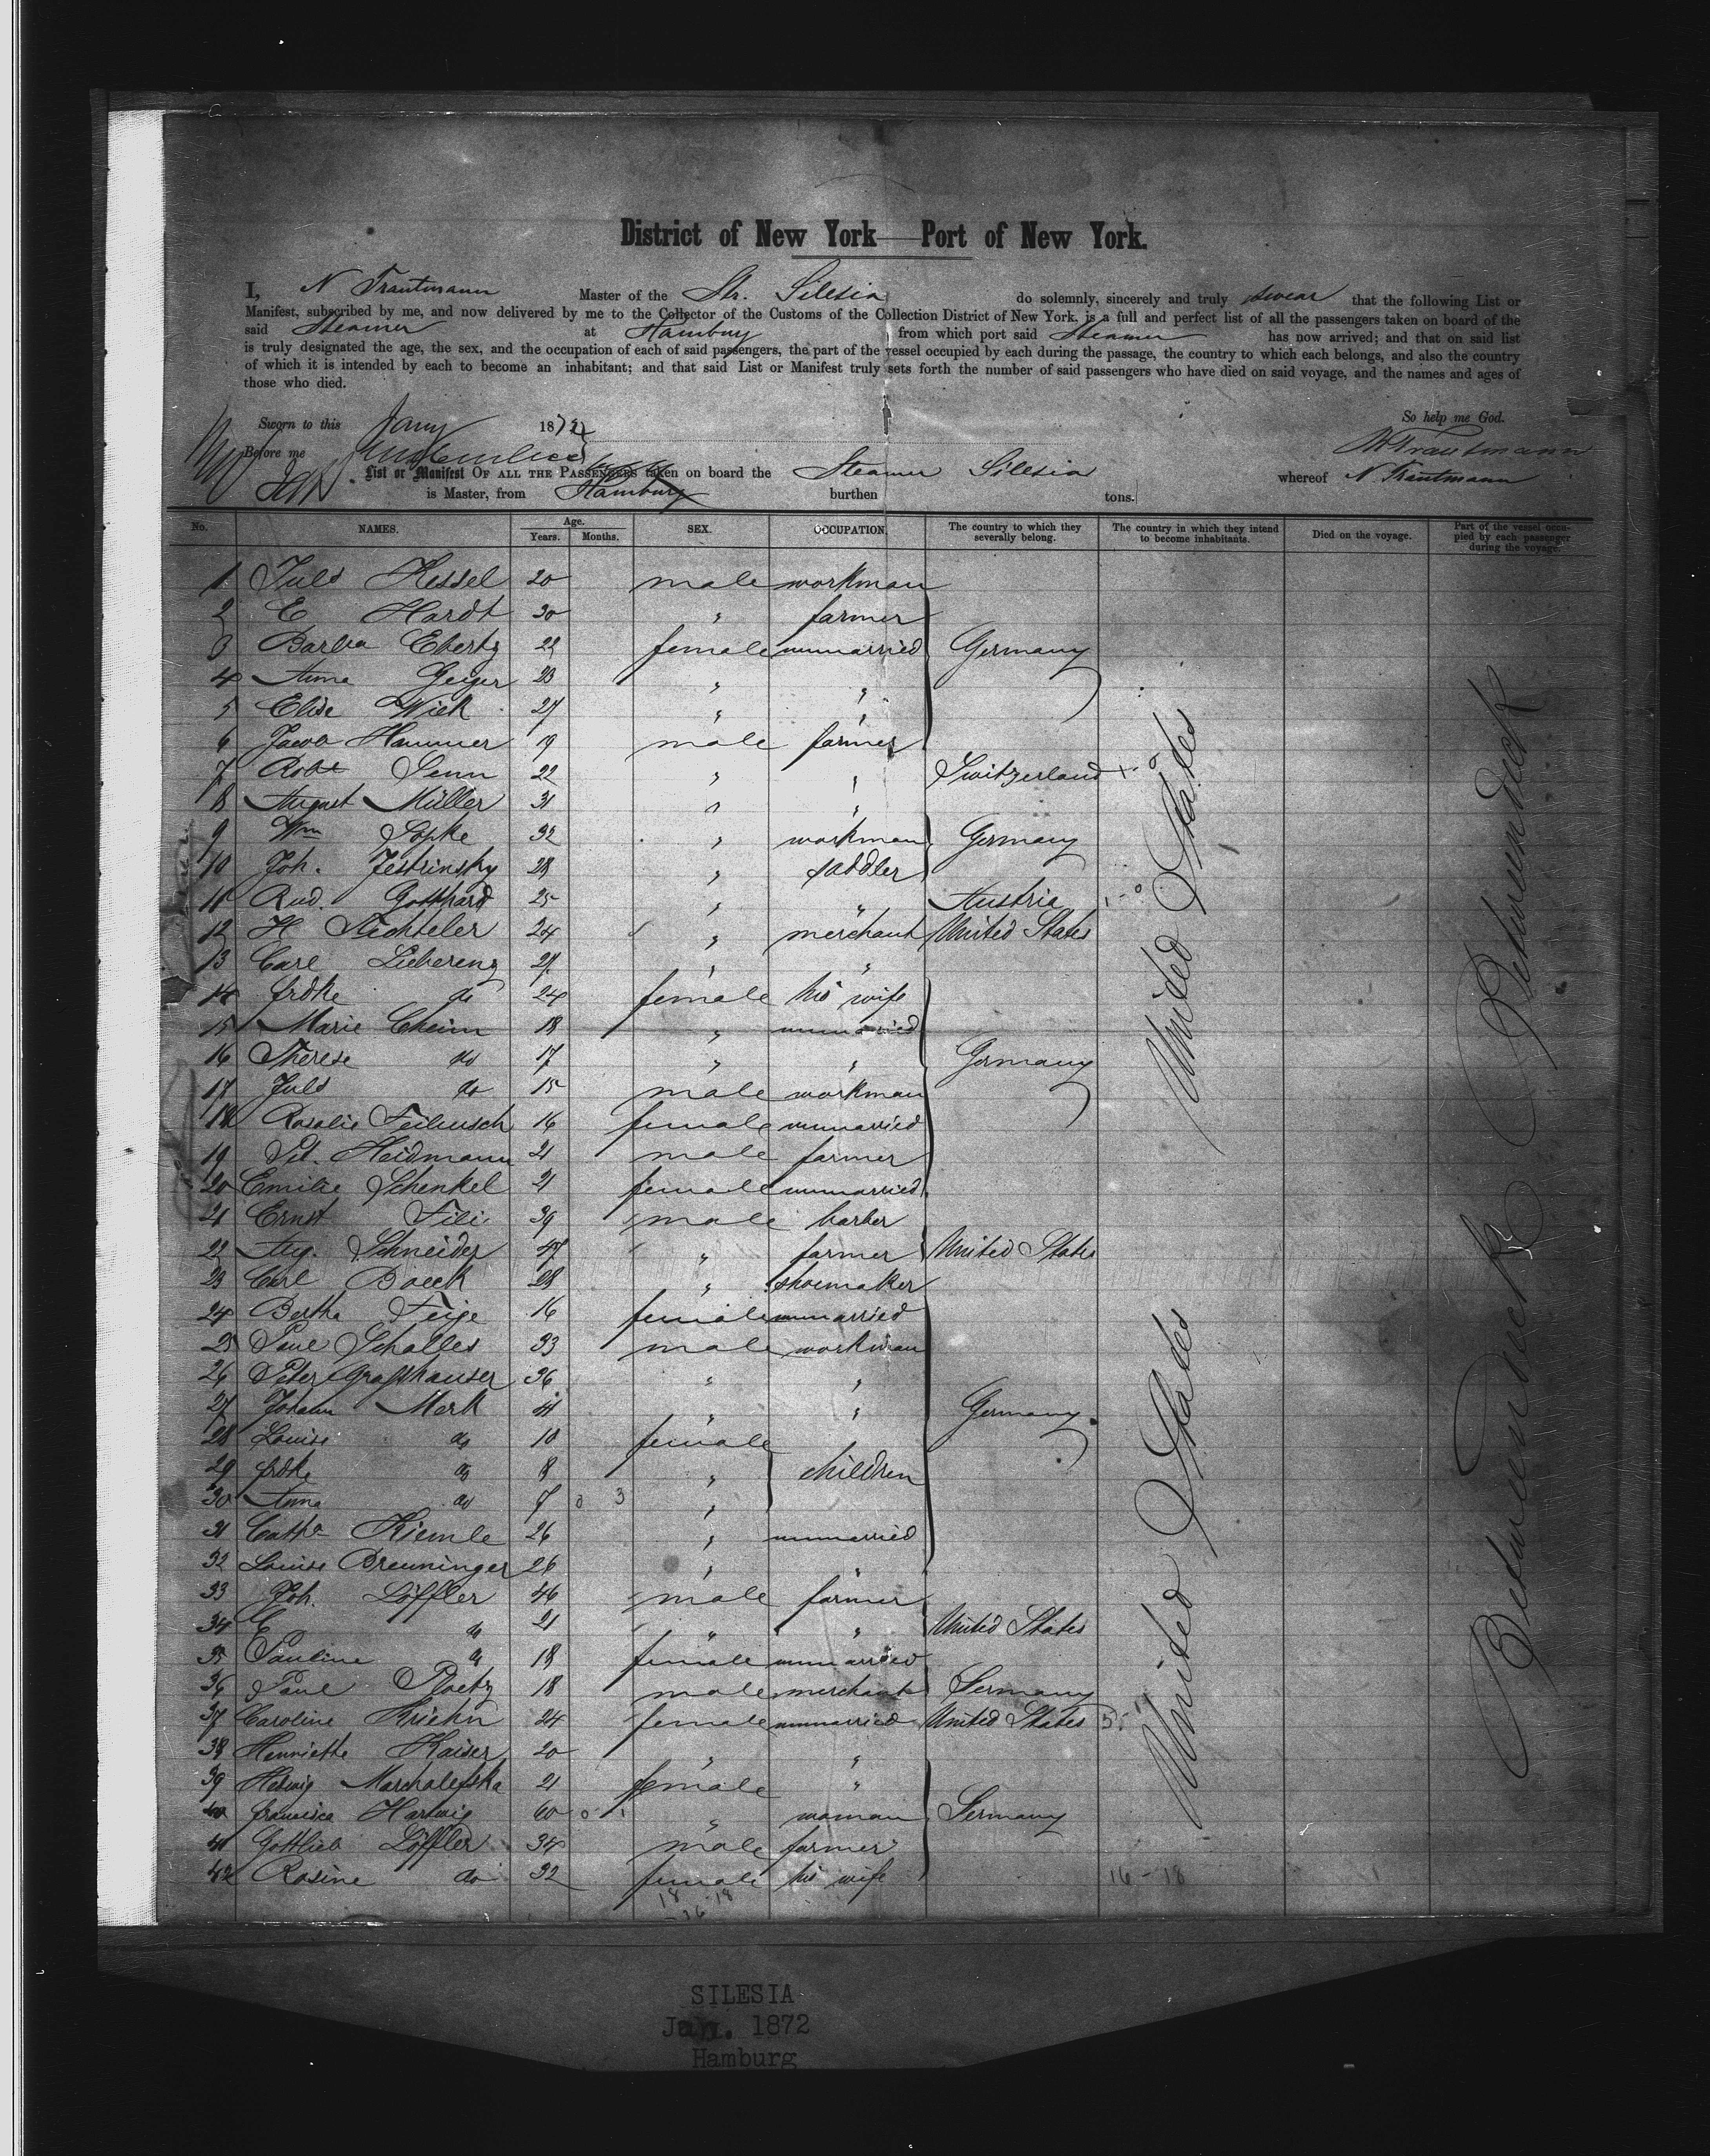 District of New York — Port of New York.
I, N Trautmann Master of the Str. Silesia do solemnly, sincerely and truly swear that the following List or
Manifest, subscribed by me, and now delivered by me to the Collector of the Customs of the Collection District of New York, is a full and perfect list of all the passengers taken on board of the
said Steamer at Hamburg from which port said Steamer has now arrived; and that on said list
is truly designated the age, the sex, and the occupation of each of said passengers, the part of the vessel occupied by each during the passage, the country to which each belongs, and also the country
of which it is intended by each to become an inhabitant; and that said List or Manifest truly sets forth the number of said passengers who have died on said voyage, and the names and ages of
those who died.
Sworn to this Jany 1872 So help me God.
Before me N Trautmann
List or Manifest OF ALL THE PASSENGERS taken on board the Steamer Silesia whereof N Trautmann
is Master, from Hamburg burthen tons.
No. NAMES. Age. Years. Months. SEX. OCCUPATION. The country to which they severally belong. The country in which they intend to become inhabitants. Died on the voyage. Part of the vessel occupied by each passenger during the voyage.
1 Juls Hessel 20 male workman
2 E Hardt 30 " farmer
3 Barba Ebertz 22 female unmarried Germany
4 Anna Geiger 23 " "
5 Elise Wiek 27 " "
6 Jacob Hammer 19 male farmer
7 Robt Senn 22 " " Switzerland
8 August Müller 31 " "
9 Wm Sopke 32 " workman Germany
10 Joh. Jestrinsky 28 " saddler
11 Rud. Gotthard 25 " " Austria
12 H Stichteler 24 " merchant United States
13 Carl Lieberenz 27 " "
14 Frdke do 24 female his wife
15 Marie Cheim 18 " unmarried
16 Therese do 17 " " Germany
17 Juls do 15 male workman
18 Rosalie Feibusch 16 female unmarried
19 Pet. Heidmann 21 male farmer
20 Emilie Schenkel 21 female unmarried
21 Ernst Fili 39 male barber
22 Aug. Schneider 47 " farmer United States
23 Carl Boeck 28 " shoemaker
24 Bertha Feige 16 female unmarried
25 Paul Schalles 33 male workman
26 Peter Grasshauser 36 " "
27 Johann Merk 41 " " Germany
28 Louise do 10 female
29 Frdke do 8 " children
30 Anna do 7 0 3 "
31 Catha Kiemle 26 " unmarried
32 Louise Breuninger 26 " "
33 Joh. Löffler 46 male farmer
34 C do 21 " " United States
35 Pauline do 18 female unmarried
36 Paul Ploetz 18 male merchant Germany
37 Caroline Kriehn 24 female unmarried United States
38 Henriette Kaiser 20 " "
39 Hedwig Marchalefska 21 female "
40 Francisca Hartwig 60 " woman Germany
41 Gottlieb Löffler 34 male farmer
42 Rosine do 32 female his wife
16 - 18
United States
United States
Between deck
Between deck
SILESIA
Jan. 1872
Hamburg